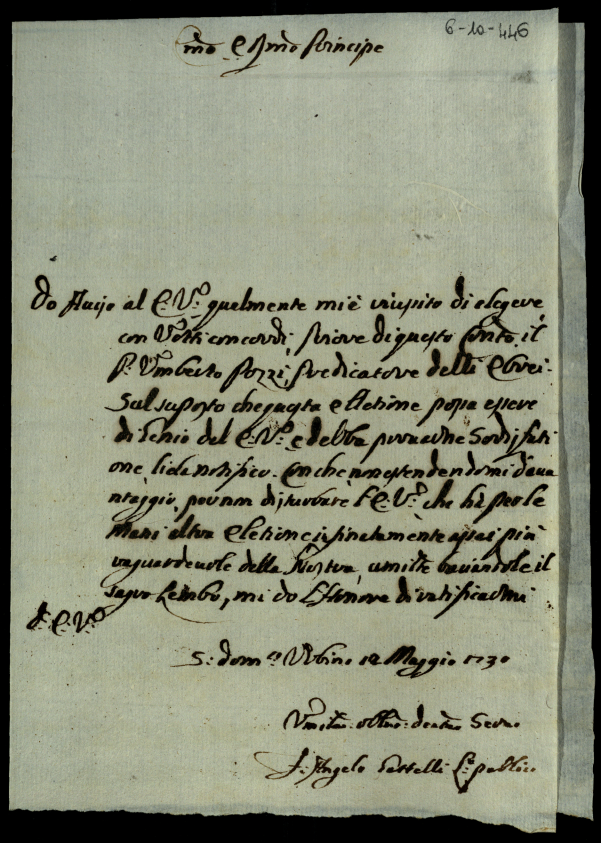 6-10-446
Emo e Rmo Principe
Do Aviso al E. V.ª qualmente mi è riuscito di elegere
con Votti concordi, Priore di questo Conv.to il
P. Umberto Pozzi, Predicatore delli Ebrei.
Sul suposto che questa elletione possa essere
di Genio del E. V.ª e debba provarne Sodisfati
one, lida notifico. Con che non estendendomi d'ava
ntaggio, per non disturbare l'E. V.ª che hà per le
Mani altra eletione infinitamente assai più
raguardevole della Nostra, umilte baciandole il
sagro Lembo, mi do l'Honore di ratificarmi
D. E. V.ª
S: Dom.co Urbino 12 Maggio 1730
Umil.mo obblig.mo devot.mo Servo
F. Angelo